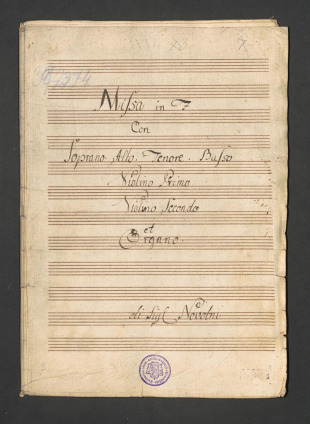 Missa in F
Con
Soprano. Alto. Tenore. Basso
Violino Primo
Violino Secondo
et
Organo.
di Sig Novotni